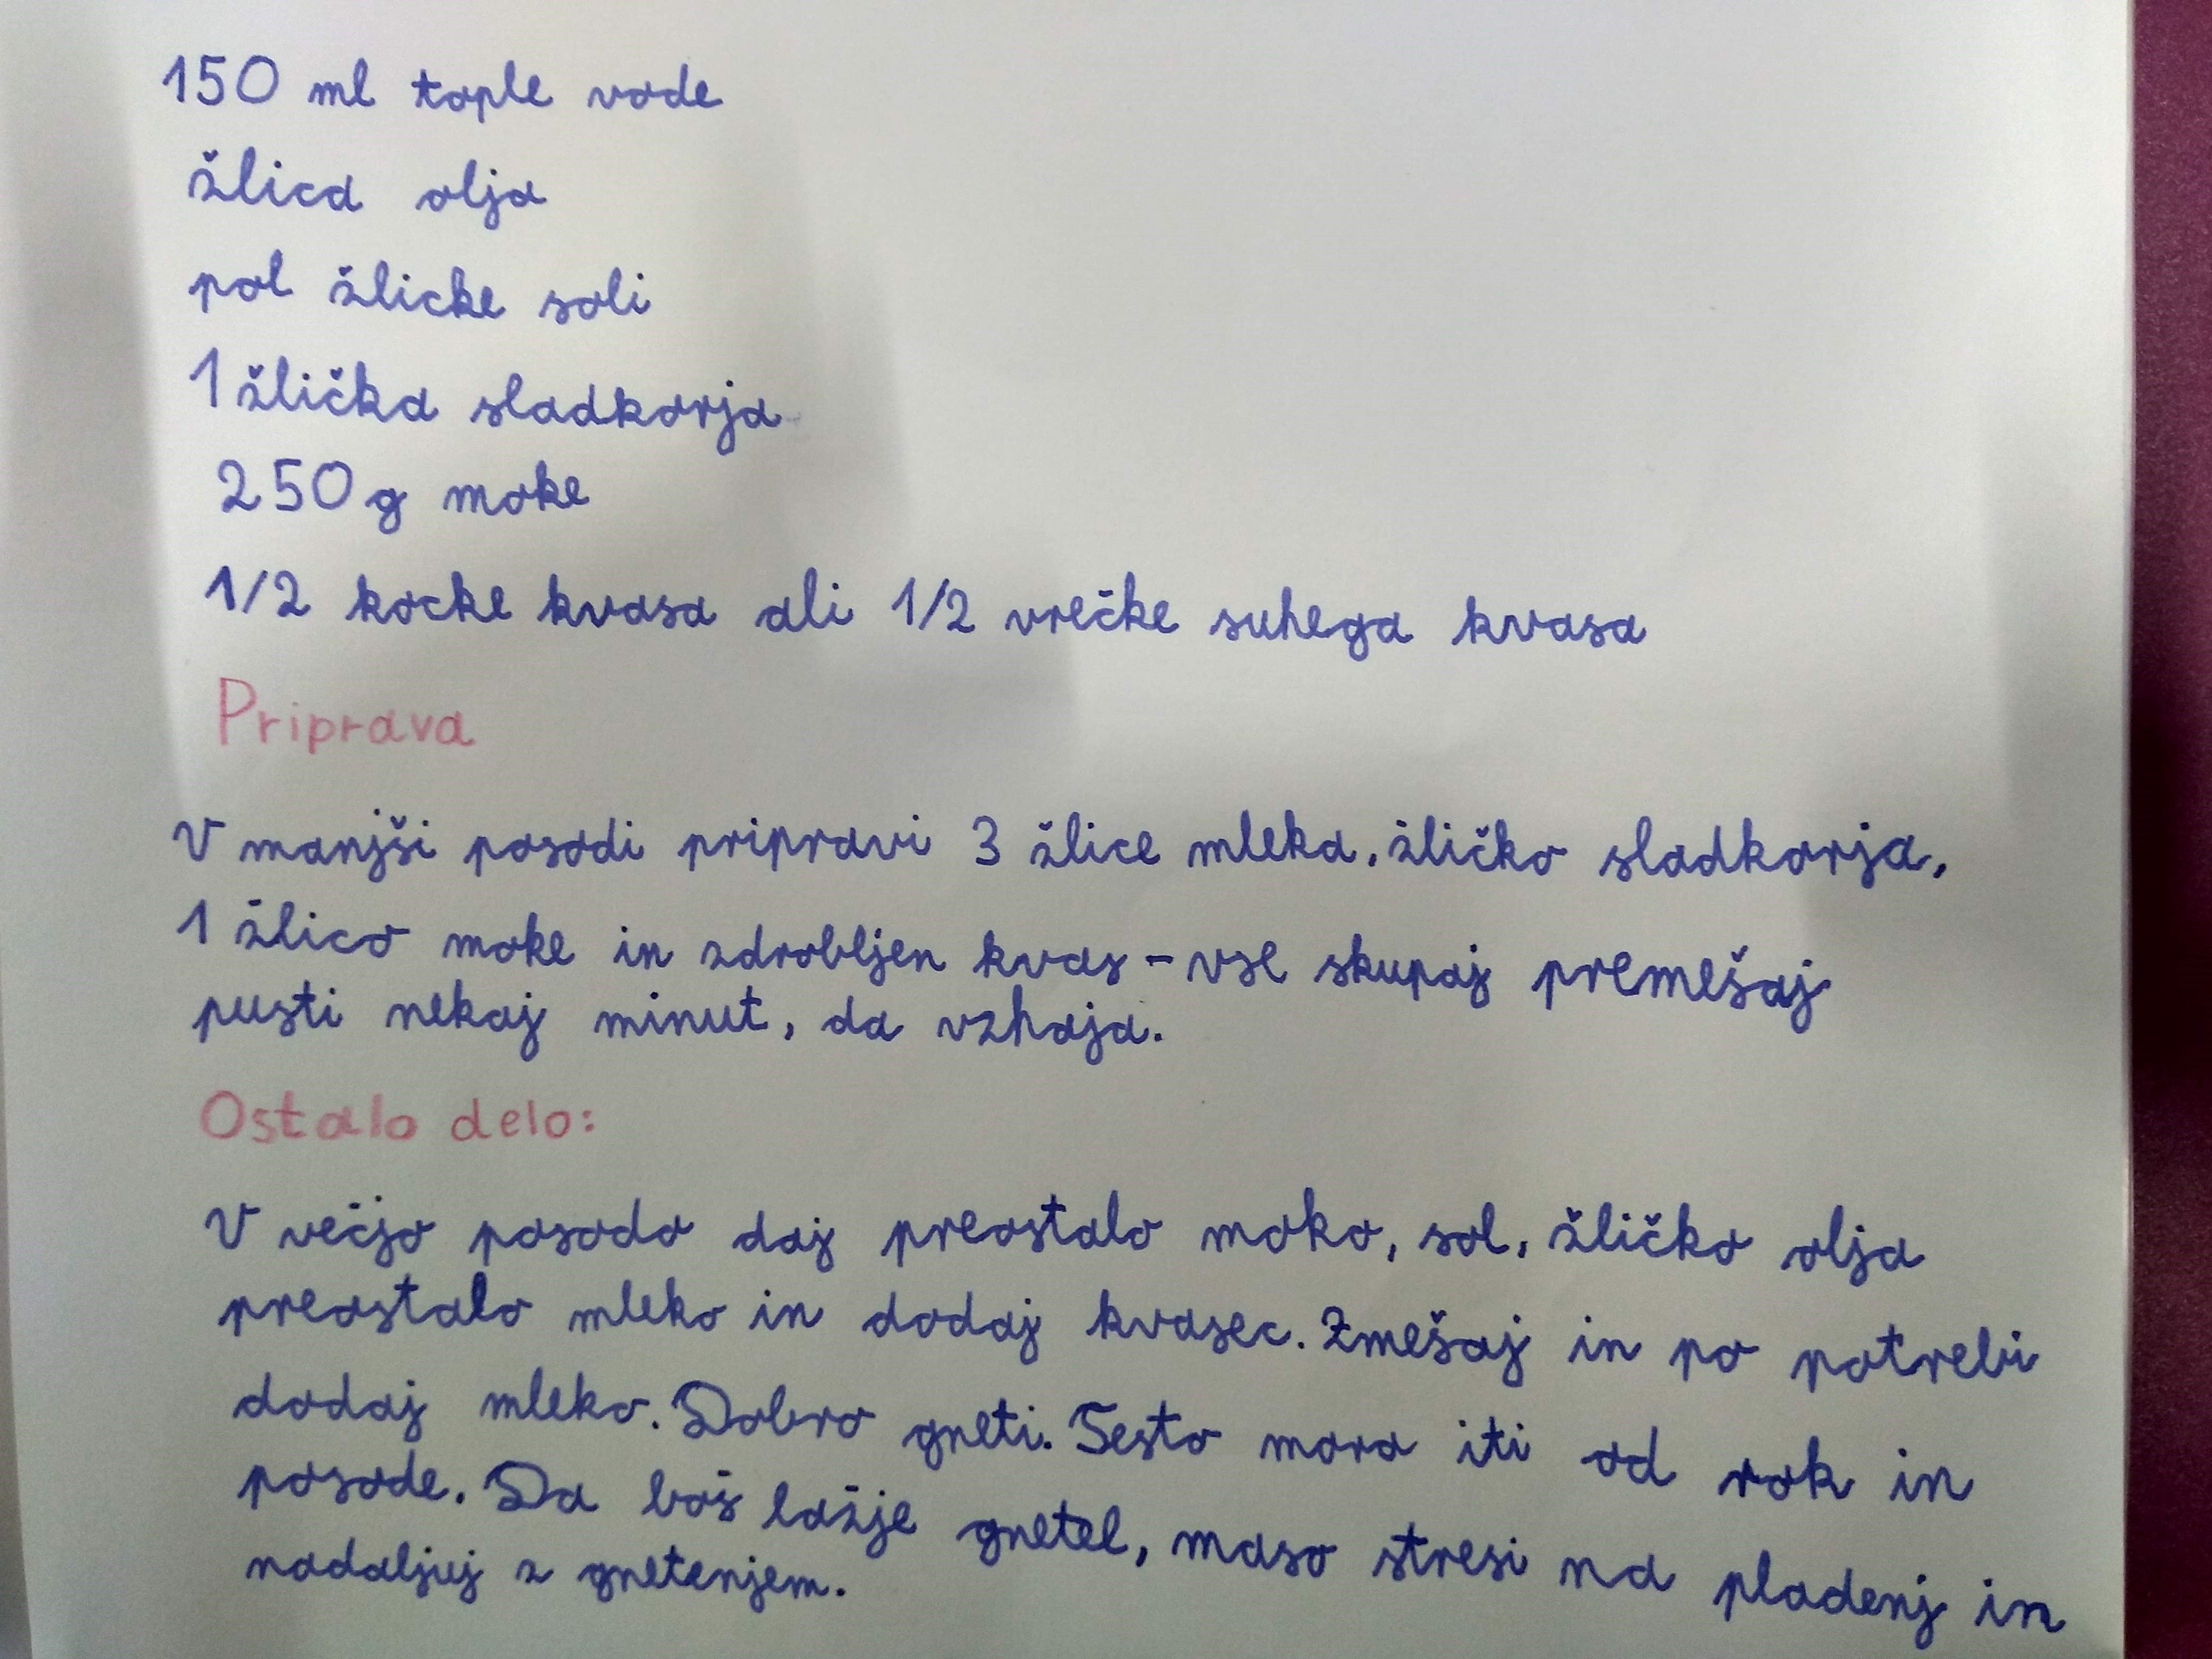 150 ml tople vode
žlica olja
pol žlicke soli
1 žlička sladkorja
250 g moke
1/2 kocke kvasa ali 1/2 vrečke suhega kvasa
Priprava
V manjši posodi pripravi 3 žlice mleka, žličko sladkorja,
1 žlico moke in zdrobljen kvas - vse skupaj premešaj
pusti nekaj minut, da vzhaja.
Ostalo delo:
V večjo posodo daj preostalo moko, sol, žličko olja
preostalo mleko in dodaj kvasec. Zmešaj in po potrebi
dodaj mleko. Dobro gneti. Testo mora iti od rok in
posode. Da boš lažje gnetel, maso stresi na pladenj in
nadaljuj z gnetenjem.